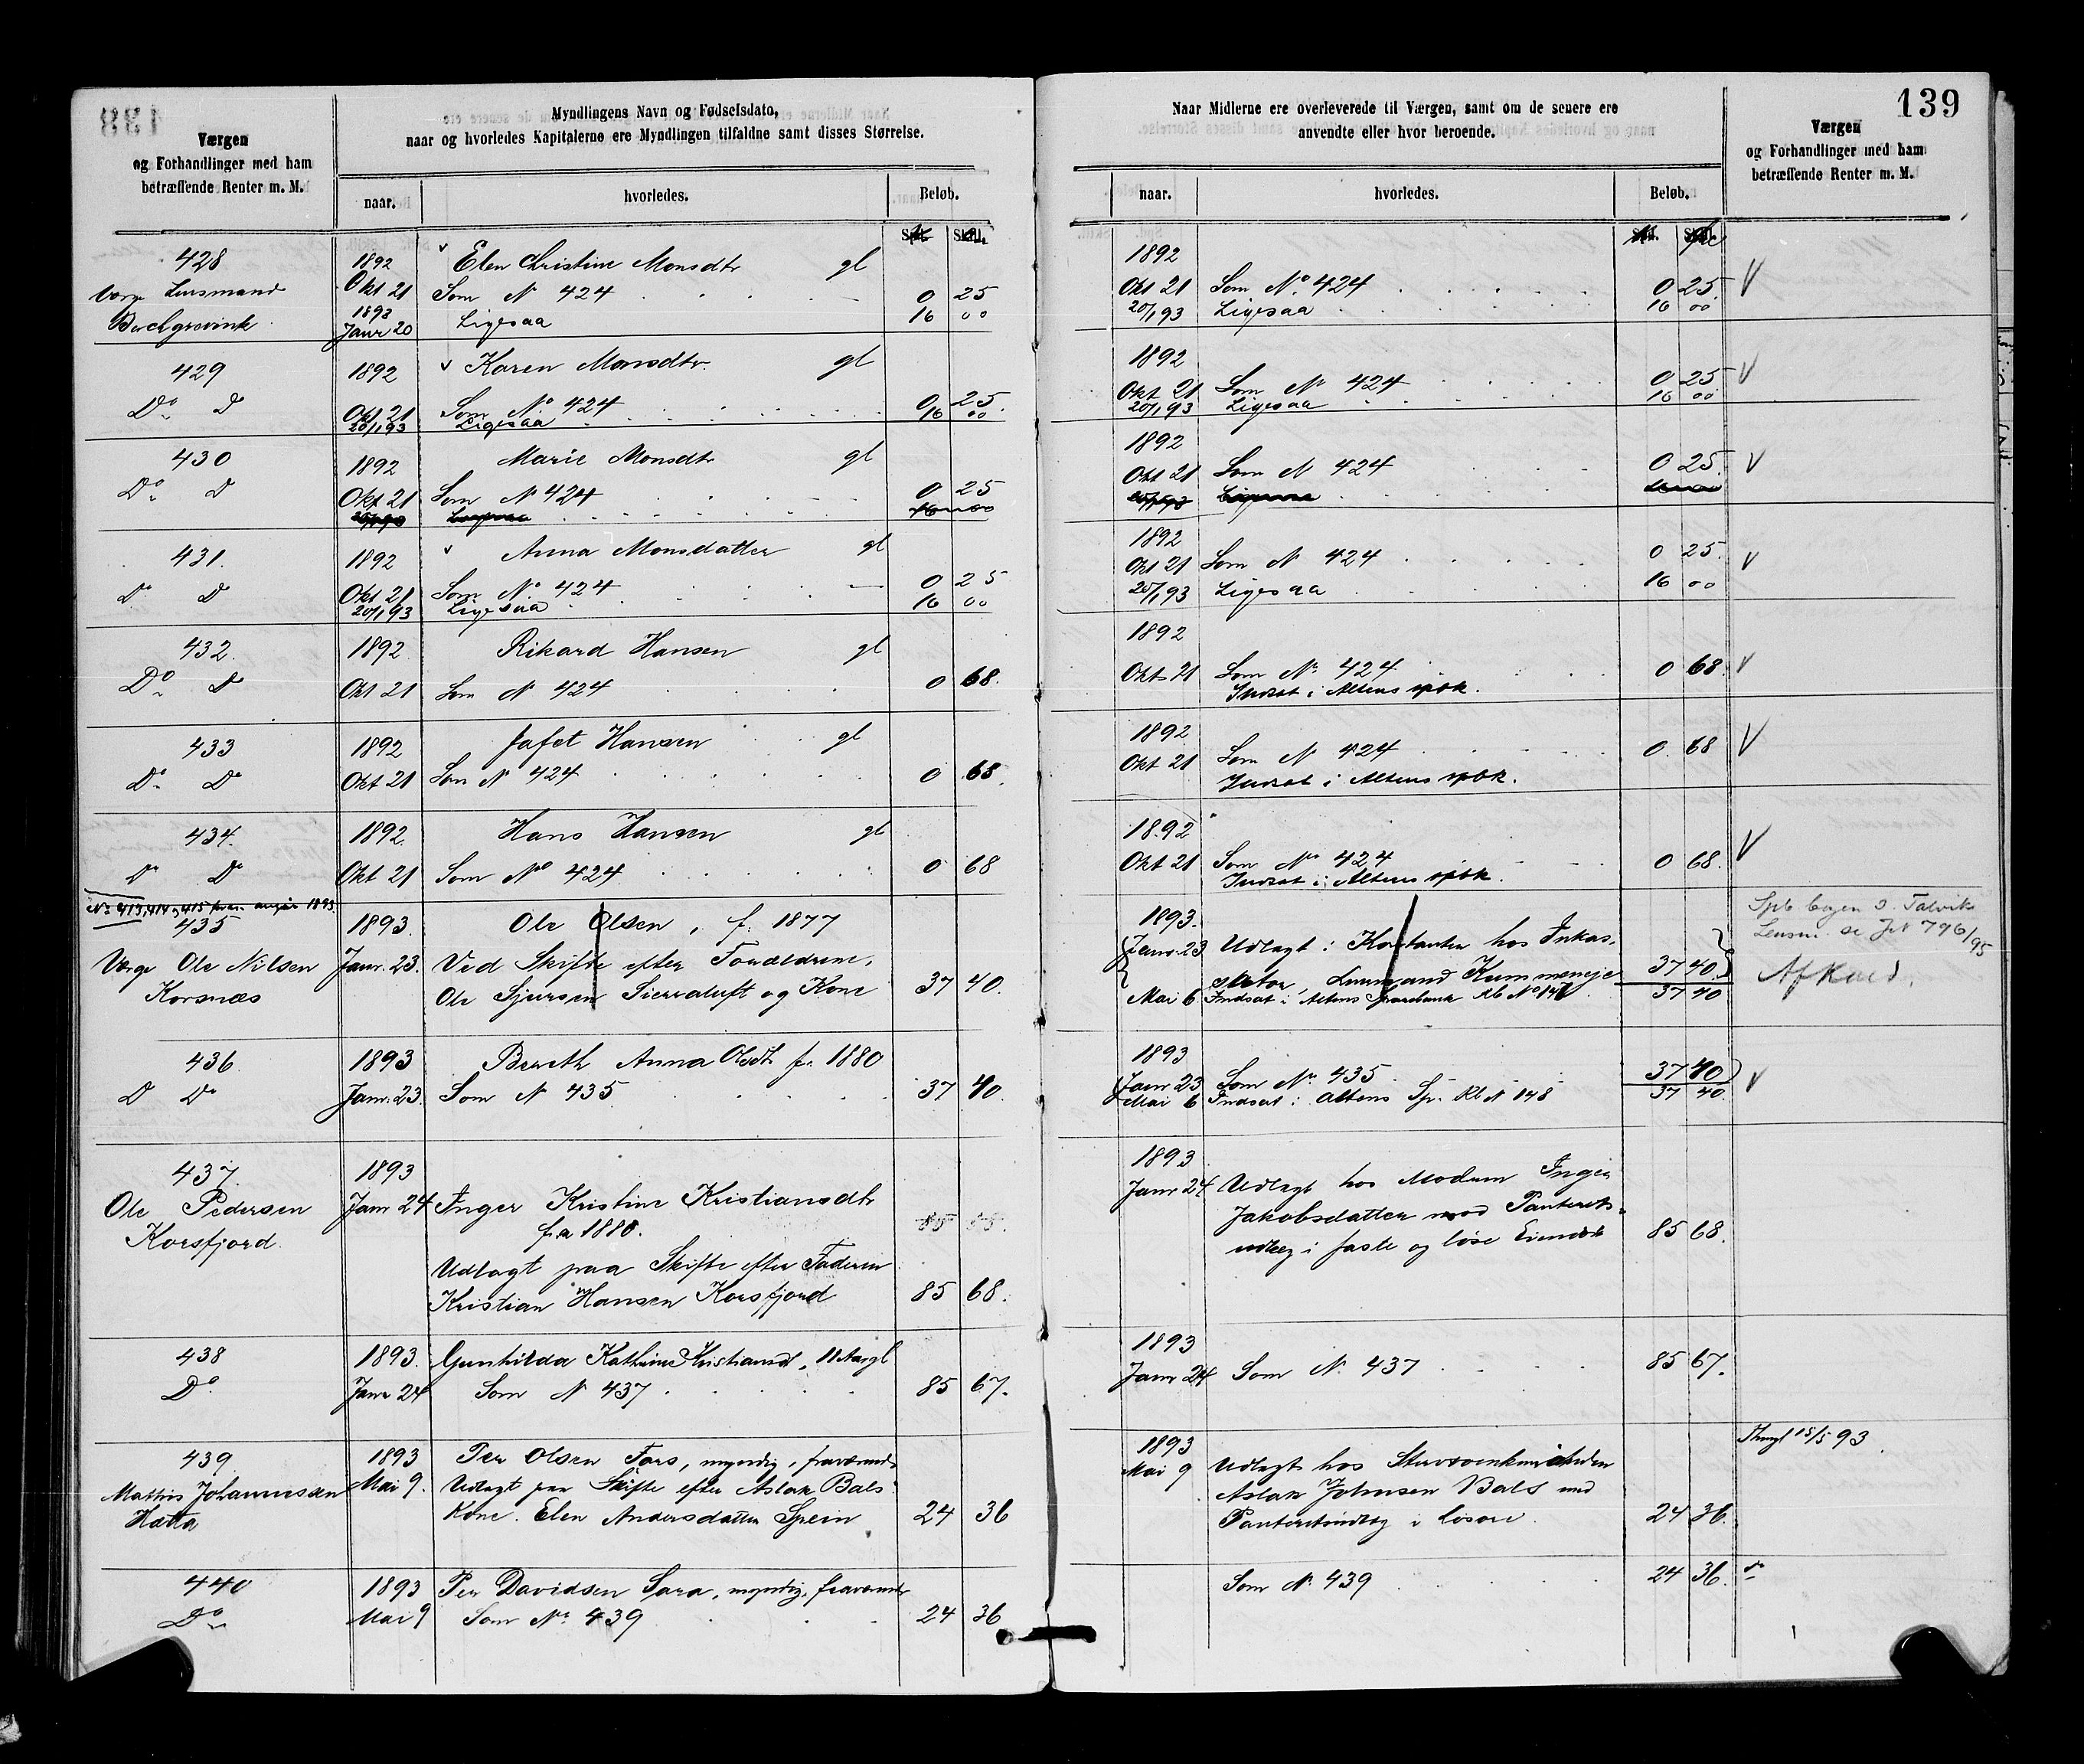 139
Værgen
og Forhandlinger med ham
betræffende Renter m. M.
Myndlingens Navn og Fødselsdato,
naar og hvorledes Kapitalerne ere Myndlingen tilfaldne samt disses Størrelse.
naar.
hvorledes.
Beløb.
Naar Midlerne ere overleverede til Værgen, samt om de senere ere
anvendte eller hvor beroende.
naar.
hvorledes.
Beløb.
Værgen
og Forhandlinger med ham
betræffende Renter m. M.
428 1892 Elen Christine Monsdtr gl
Værge Lensmand Okt 21 Som N 424 0 25
1893
Borchgrevink Janr 20 Ligesaa 16 00
1892
Okt 21 Som No. 424 0 25 V
20/1 93 Ligesaa 16 00
429 1892 Karen Monsdtr. gl
Do D Okt 21 Som No 424 0 25.
20/1 93 Ligesaa 16 00
1892
Okt 21 Som No 424 0 25 V
20/1 93 Ligesaa 16 00
430 1892 Marie Monsdtr gl
Do D Okt 21 Som N 424 0 25
20/1 93 Ligesaa 16 00
1892
Okt 21 Som N 424 0 25. V
431. 1892 Anna Monsdatter gl
Do D Okt 21 Som No. 424 0 25
20/1 93 Ligesaa 16 00
1892
Okt 21 Som N 424 0 25. V
20/1 93 Ligesaa 16 00
432. 1892 Rikard Hansen gl
Do D Okt 21 Som N 424 0 68.
1892
Okt 21 Som No. 424 0 68. V
Indsat i Altens spbk.
433 1892 Jafet Hansen gl
Do Do Okt 21 Som N 424 0 68.
1892
Okt 21 Som N 424 0. 68 V
Indsat i Altens spbk.
434. 1892. Hans Hansen gl
Do Do Okt 21 Som No 424 0 68
1892
Okt 21 Som No 424 0 68. V
Indsat i Altens spbk.
No 413, 414, 415 1893
435 1893. Ole Olsen, f. 1877
Værge Ole Nilsen Janr. 23. Ved Skifte efter Forældrene,
Korsnæs Ole Sjursen Sierraluft og Kone 37 40.
1893.
Janr. 23 Udlagt i Kontanter hos Inkas-
sator, Lensmand Kummeneje 37 40.
Mai 6 Indsat i Altens Sparebank Kb No 147 37 40
Spb bogen s. Talvik
Lensm. se Jr 796/95
Afkald.
436. 1893 Bereth Anna Olsdtr f. 1880
D Do Janr. 23. Som N 435 37 40.
1893
Janr 23 Som No. 435 37 40
Mai 6 Indsat i Altens Sp. Kb N 148 37 40. V
437. 1893
Ole Pedersen Janr 24 Inger Kristine Kristiansdtr
Korsfjord. fra 1880.
Udlagt paa Skifte efter Faderen
Kristian Hansen Korsfjord 85 68.
1893
Janr 24 Udlagt hos Modern Inger
Jakobsdatter mod Panterets-
udlæg i faste og løse Eiendele 85 68.
438 1893. Gunhilda Kathrine Kristiansd, 11 Aargl
Do. Janr 24 Som N 437 85 67.
1893
Janr 24 Som N. 437 85 67.
439 1893 Per Olsen Fors, myndig, fraværende
Mathis Johannessen Mai 9. Udlagt paa Skifte efter Aslak Bals
Hætta Kone. Elen Andersdatter Spein 24 36
1893
Mai 9 Udlagt hos Stervboenkemanden
Aslak Johnsen Bals med
Panteretsudlæg i Løsøre. 24 36.
Thingl 15/5 93.
440 1893 Per Davidsen Sara, myndig, fraværende
Do Mai 9 Som No. 439 24 36
Som N. 439 24 36. do